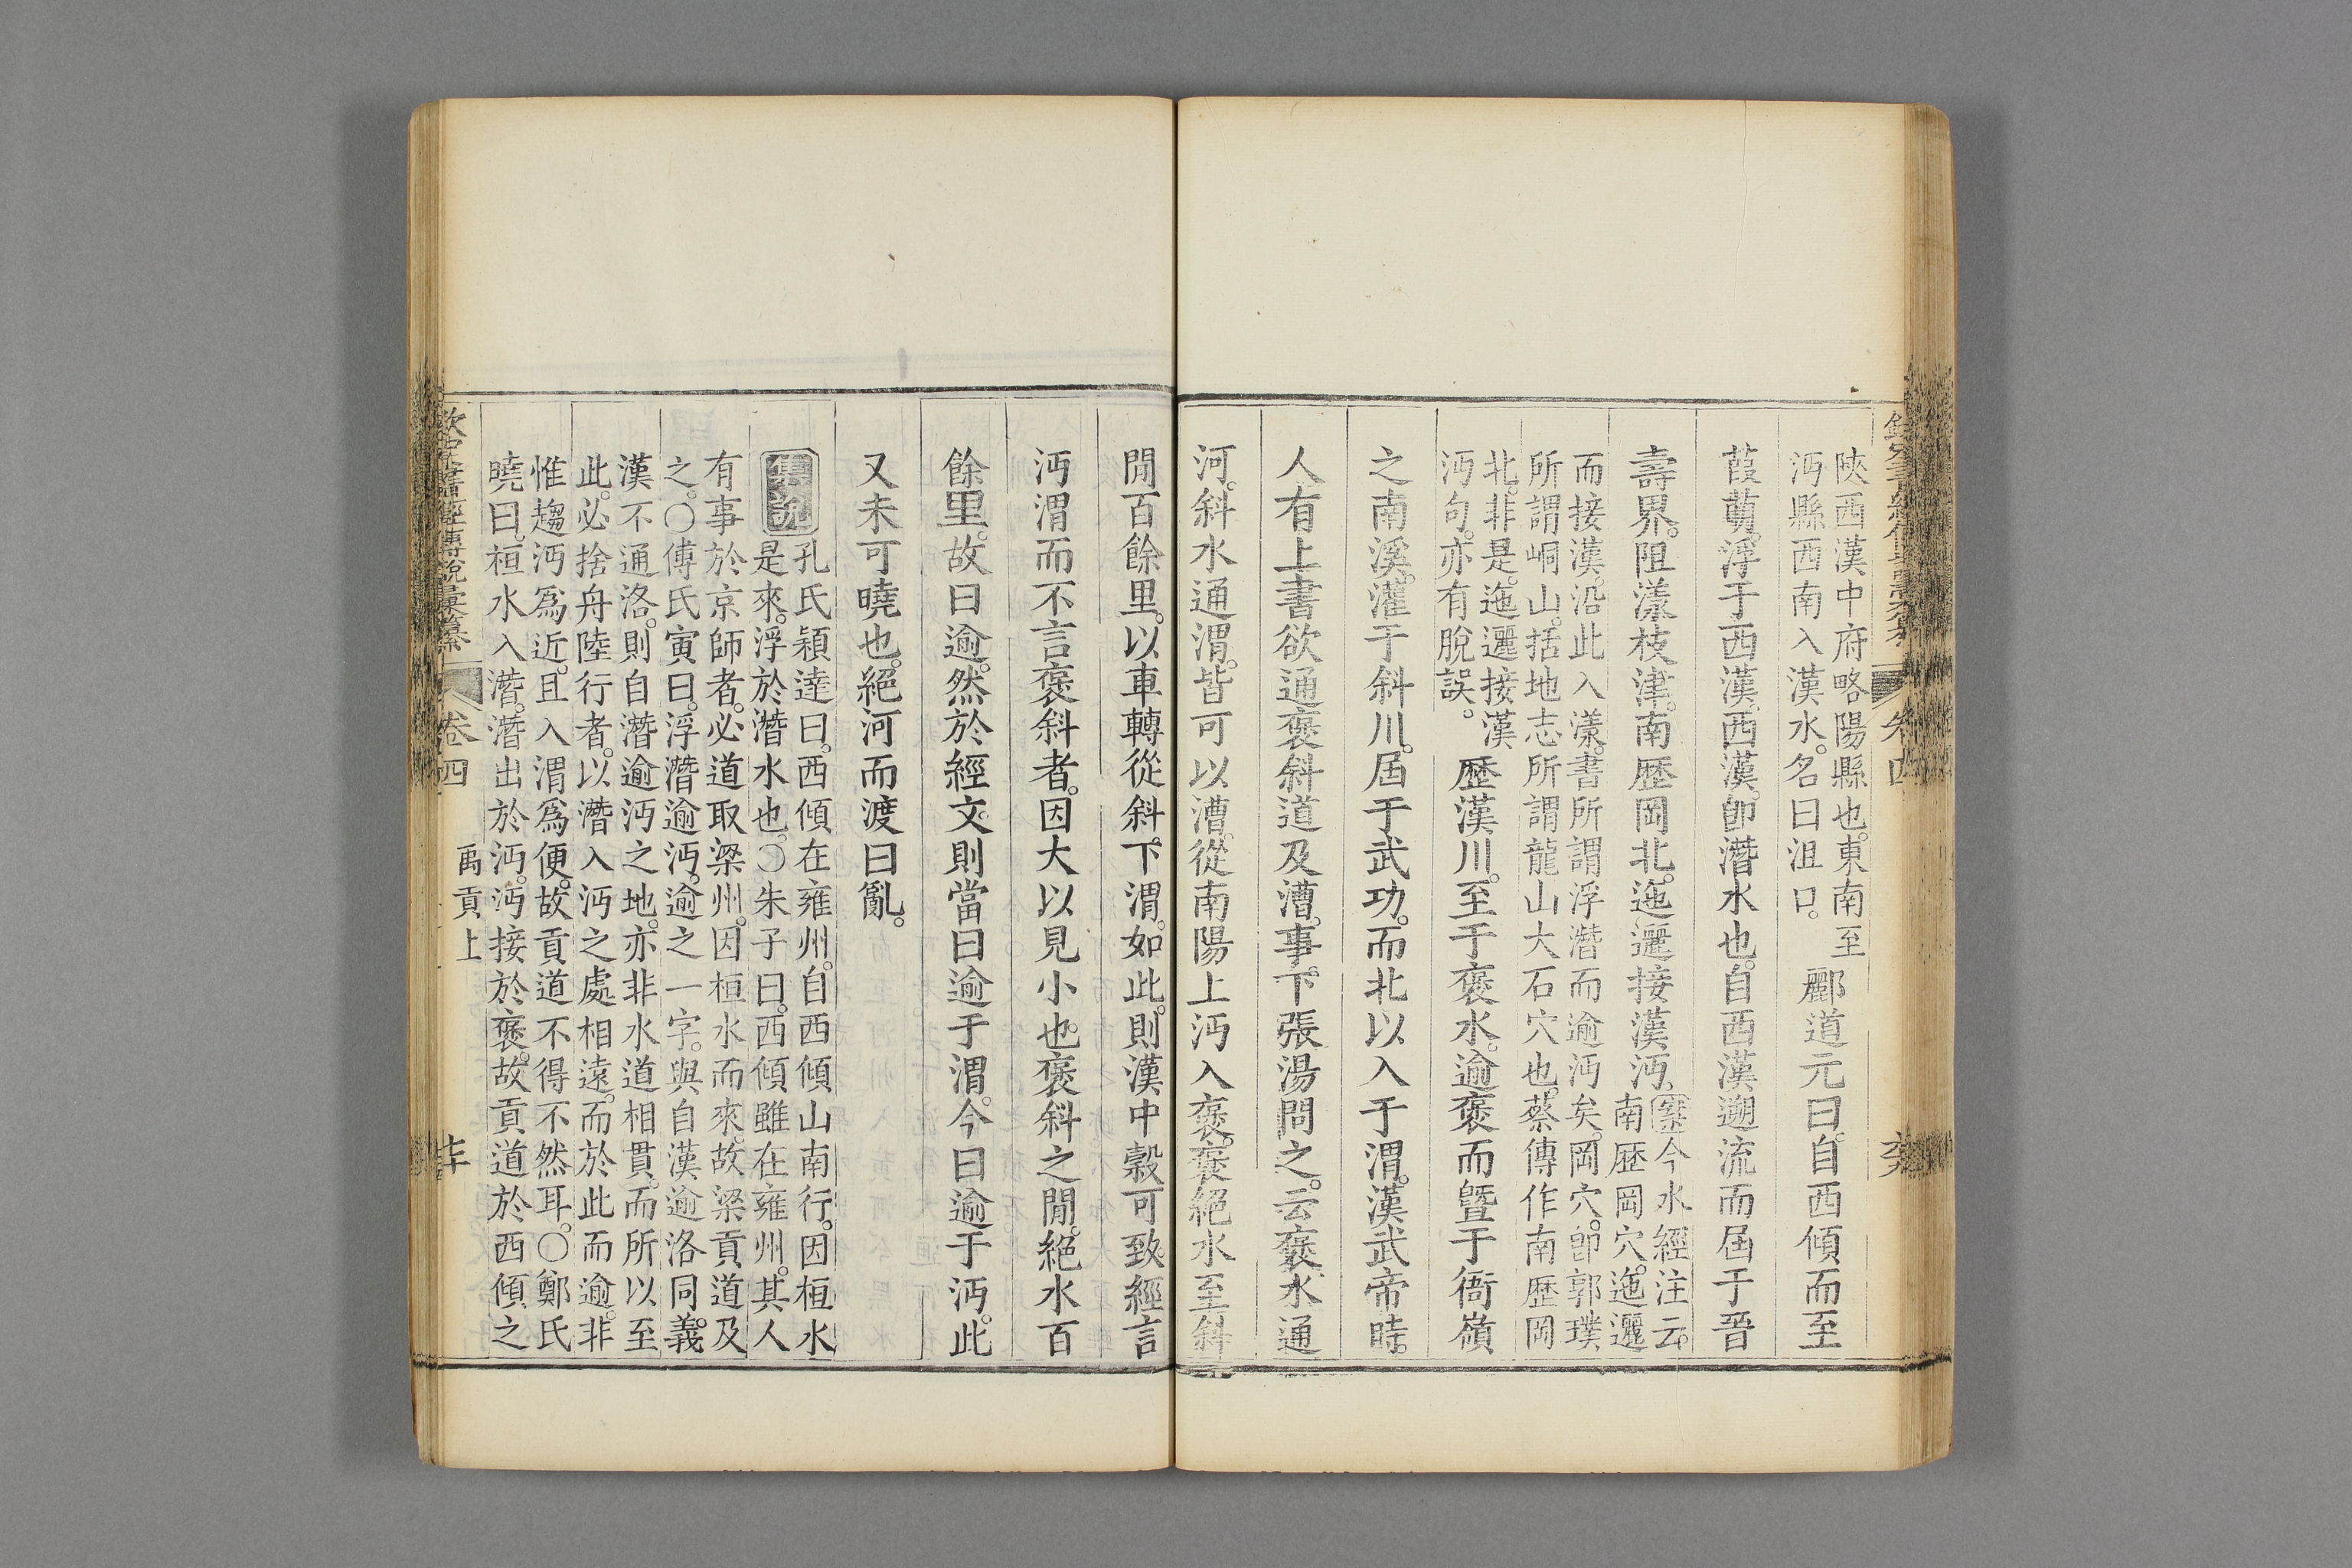 陜西漢中府略陽縣也。東南至
沔縣西南入漢水。名曰沮口。
酈道元曰。自西傾而至
葭萌。浮于西漢。西漢。卽潛水也。自西漢遡流而屆于晉
壽界。阻漾枝津。南歷岡北。迤邐接漢沔。
案今水經注云。
南歷岡穴。迤邐
而接漢。沿此入漾。書所謂浮潛而逾沔矣。岡穴。卽郭璞
所謂峒山。括地志所謂龍山大石穴也。蔡傳作南歷岡
北。非是。迤邐接漢
沔句。亦有脫誤。
歷漢川。至于褒水。逾褒而曁于衙嶺
之南溪。灌于斜川。屆于武功。而北以入于渭。漢武帝時。
人有上書欲通褒斜道及漕。事。下張湯問之。云褒水通
河。斜水通渭。皆可以漕。從南陽上沔入褒。褒絕水至斜
閒百餘里。以車轉從斜。下渭。如此。則漢中穀可致。經言
沔渭而不言褒斜者。因大以見小也。褒斜之閒。絕水百
餘里。故曰逾。然於經文。則當曰逾于渭。今曰逾于沔。此
又未可曉也。絕河而渡曰亂。
集說
孔氏穎達曰。西傾在雍州。自西傾山南行。因桓水
是來。浮於潛水也。○朱子曰。西傾雖在雍州。其人
有事於京師者。必道取梁州。因桓水而來。故梁貢道及
之。○傅氏寅曰。浮潛逾沔。逾之一字。與自漢逾洛同義。
漢不通洛。則自潛逾沔之地。亦非水道相貫。而所以至
此。必捨舟陸行者。以潛入沔之處相遠。而於此而逾。非
惟趨沔爲近。且入渭爲便。故貢道不得不然耳。○鄭氏
曉曰。桓水入潛。潛出於沔。沔接於褒。故貢道於西傾之
欽定書經傳說彙纂
卷四
禹貢上